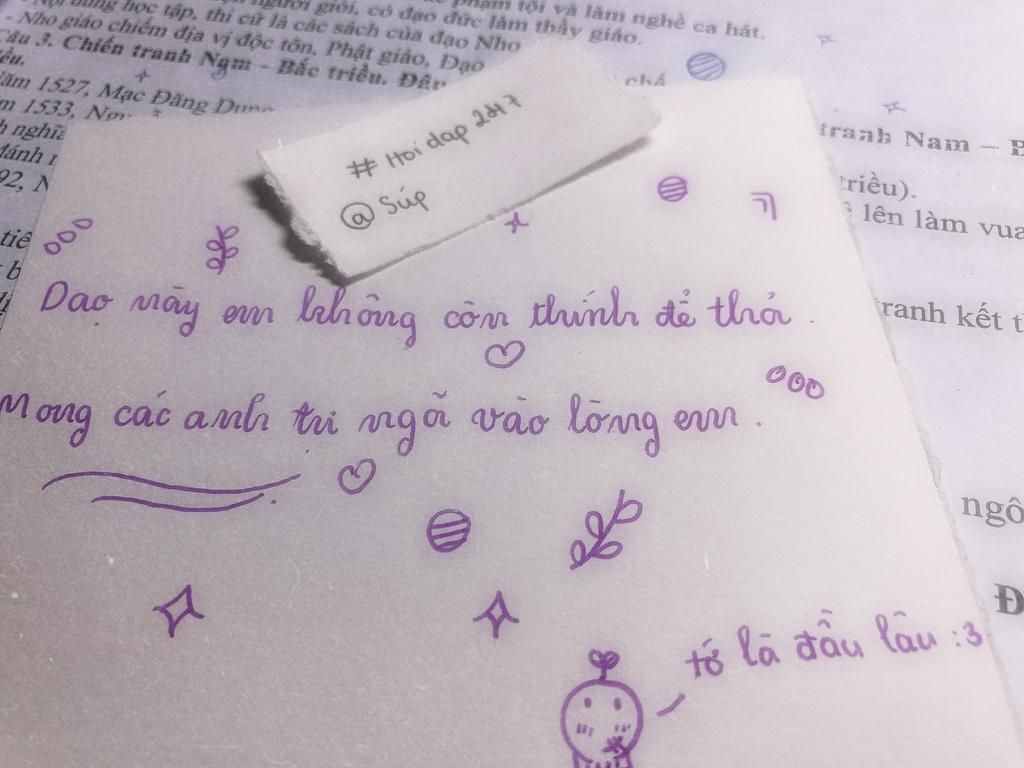 Nội dung học tập, thi cử là các sách của đạo Nho
người giỏi, có đạo đức làm thầy giáo.
phạm tội và làm nghề ca hát.
- Nho giáo chiếm địa vị độc tôn, Phật giáo, Đạo
Câu 3. Chiến tranh Nam - Bắc triều.
năm 1527, Mạc Đăng Dung
1533,
# Hoidap 247
@ Súp
tranh Nam – B
triều).
lên làm vua
Dạo này em không còn thính để thả .
ranh kết
Mong các anh tự ngã vào lòng em .
ngô
Đ
tớ là đầu lâu :3